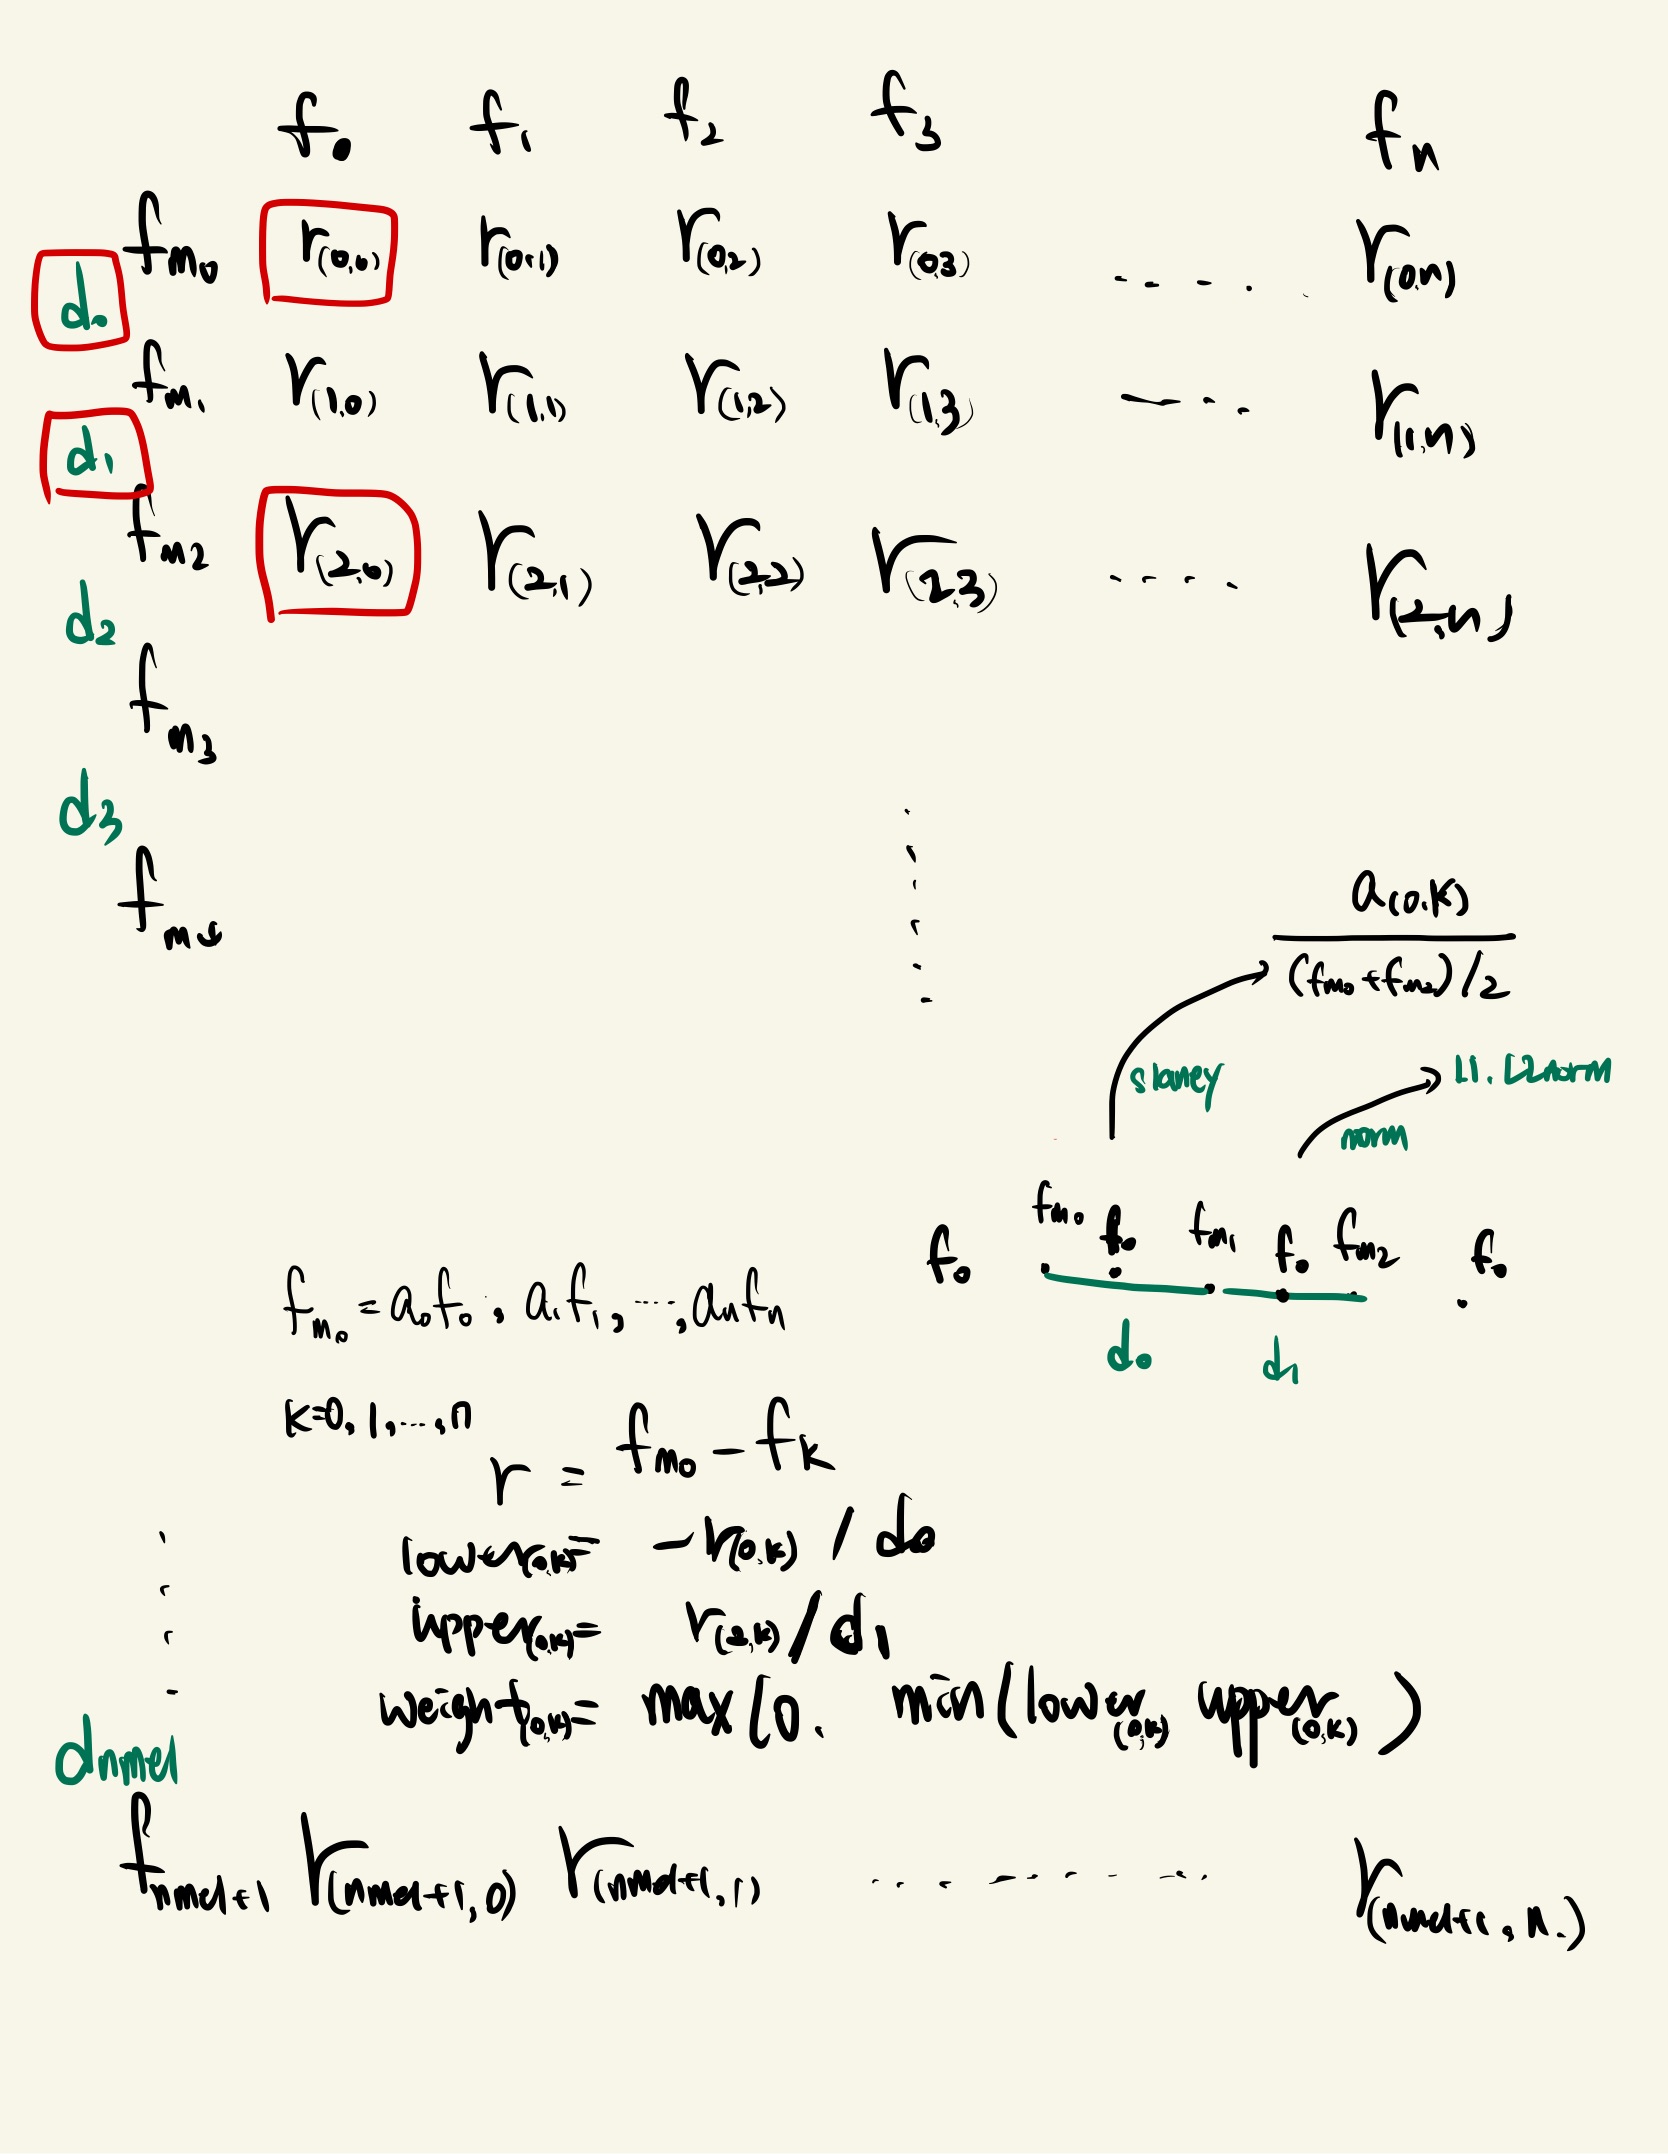 f₀ f₁ f₂ f₃ fₙ
f_m₀ r(0,0) r(0,1) r(0,2) r(0,3) - - - . r(0,n)
d₀
f_m₁ r(1,0) r(1,1) r(1,2) r(1,3) - - - . r(1,n)
d₁
f_m₂ r(2,0) r(2,1) r(2,2) r(2,3) - - - - r(2,n)
d₂
f_m₃
d₃
f_m↓
a(0,k)
(f_m₀+f_m₂)/2
slaney
L1. L2 norm
norm
f₀ f_m₀ f₀ f_m₁ f₀ f_m₂ f₀
d₀ d₁
f_m₀ = a₀f₀, a₁f₁, ..., aₙfₙ
k=0, 1, ..., n
r = f_m₀ - f_k
lower(0,k) = -r(0,k) / d₀
upper(0,k) = r(2,k) / d₁
weight(0,k) = max(0. min(lower(0,k) upper(0,k))
d_nmel
f_nmel+1 r(nmel+1, 0) r(nmel+1, 1) - - - - - - r(nmel+1, n.)